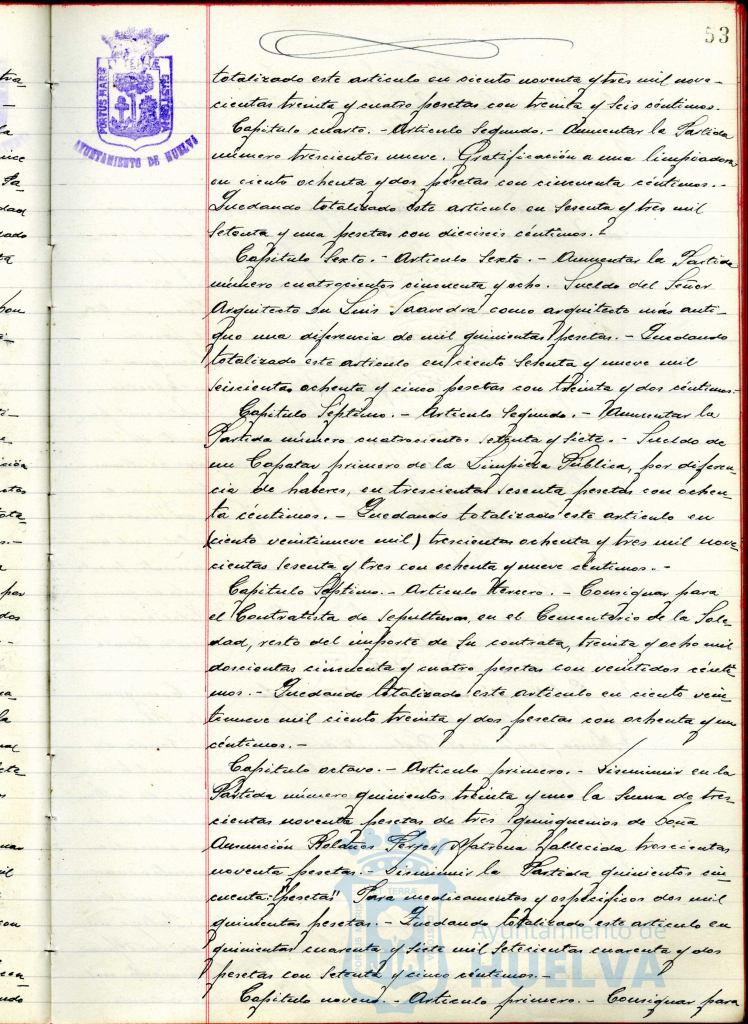 53
PORTUS MARIS
ET TERRÆ
CUSTODIA
AYUNTAMIENTO DE HUELVA
totalizado este articulo en ciento noventa y tres mil nove-
cientas treinta y cuatro pesetas con treinta y seis céntimos.
Capitulo cuarto. - Articulo Segundo. - Aumentar la Partida
número trescientos nueve. Gratificación a una limpiadora
en ciento ochenta y dos pesetas con cincuenta céntimos. -
Quedando totalizado este articulo en sesenta y tres mil
setenta y una pesetas con dieciseis céntimos.
Capitulo Sexto. - Articulo Sexto. - Aumentar la Partida
número cuatrocientos cincuenta y ocho. Sueldo del Señor
Arquitecto Dn Luis Saavedra como arquitecto más anti-
guo una diferencia de mil quinientas pesetas. - Quedando
totalizado este articulo en ciento sesenta y nueve mil
seiscientas ochenta y cinco pesetas con treinta y dos céntimos. -
Capitulo Séptimo. - Articulo Segundo. - Aumentar la
Partida número cuatrocientos setenta y siete. - Sueldo de
un Capataz primero de la Limpieza Pública, por diferen-
cia de haberes, en trescientas sesenta pesetas con ochen-
ta céntimos. - Quedando totalizado este articulo en
(ciento veintinueve mil) trescientas ochenta y tres mil nove-
cientas sesenta y tres con ochenta y nueve céntimos. -
Capitulo Séptimo. - Articulo tercero. - Consignar para
el Contratista de sepulturas, en el Cementerio de la Sole-
dad, resto del importe de su contrata, treinta y ocho mil
doscientas cincuenta y cuatro pesetas con veintidos cénti-
mos. - Quedando totalizado este articulo en ciento vein-
tinueve mil ciento treinta y dos pesetas con ochenta y un
céntimos. -
Capitulo octavo. - Articulo primero. - Disminuir en la
Partida número quinientos treinta y uno la suma de tres-
cientas noventa pesetas de tres quinquenios de Doña
Asunción Matrona fallecida trescientas
noventa pesetas. - Disminuir la Partida quinientos cin-
cuenta: "pesetas" Para medicamentos y especificos dos mil
quinientas pesetas. - Quedando totalizado este articulo en
quinientas cuarenta y siete mil setecientas cuarenta y dos
pesetas con setenta y cinco céntimos. -
Capitulo noveno. - Articulo primero. - Consignar para
Ayuntamiento de
HUELVA